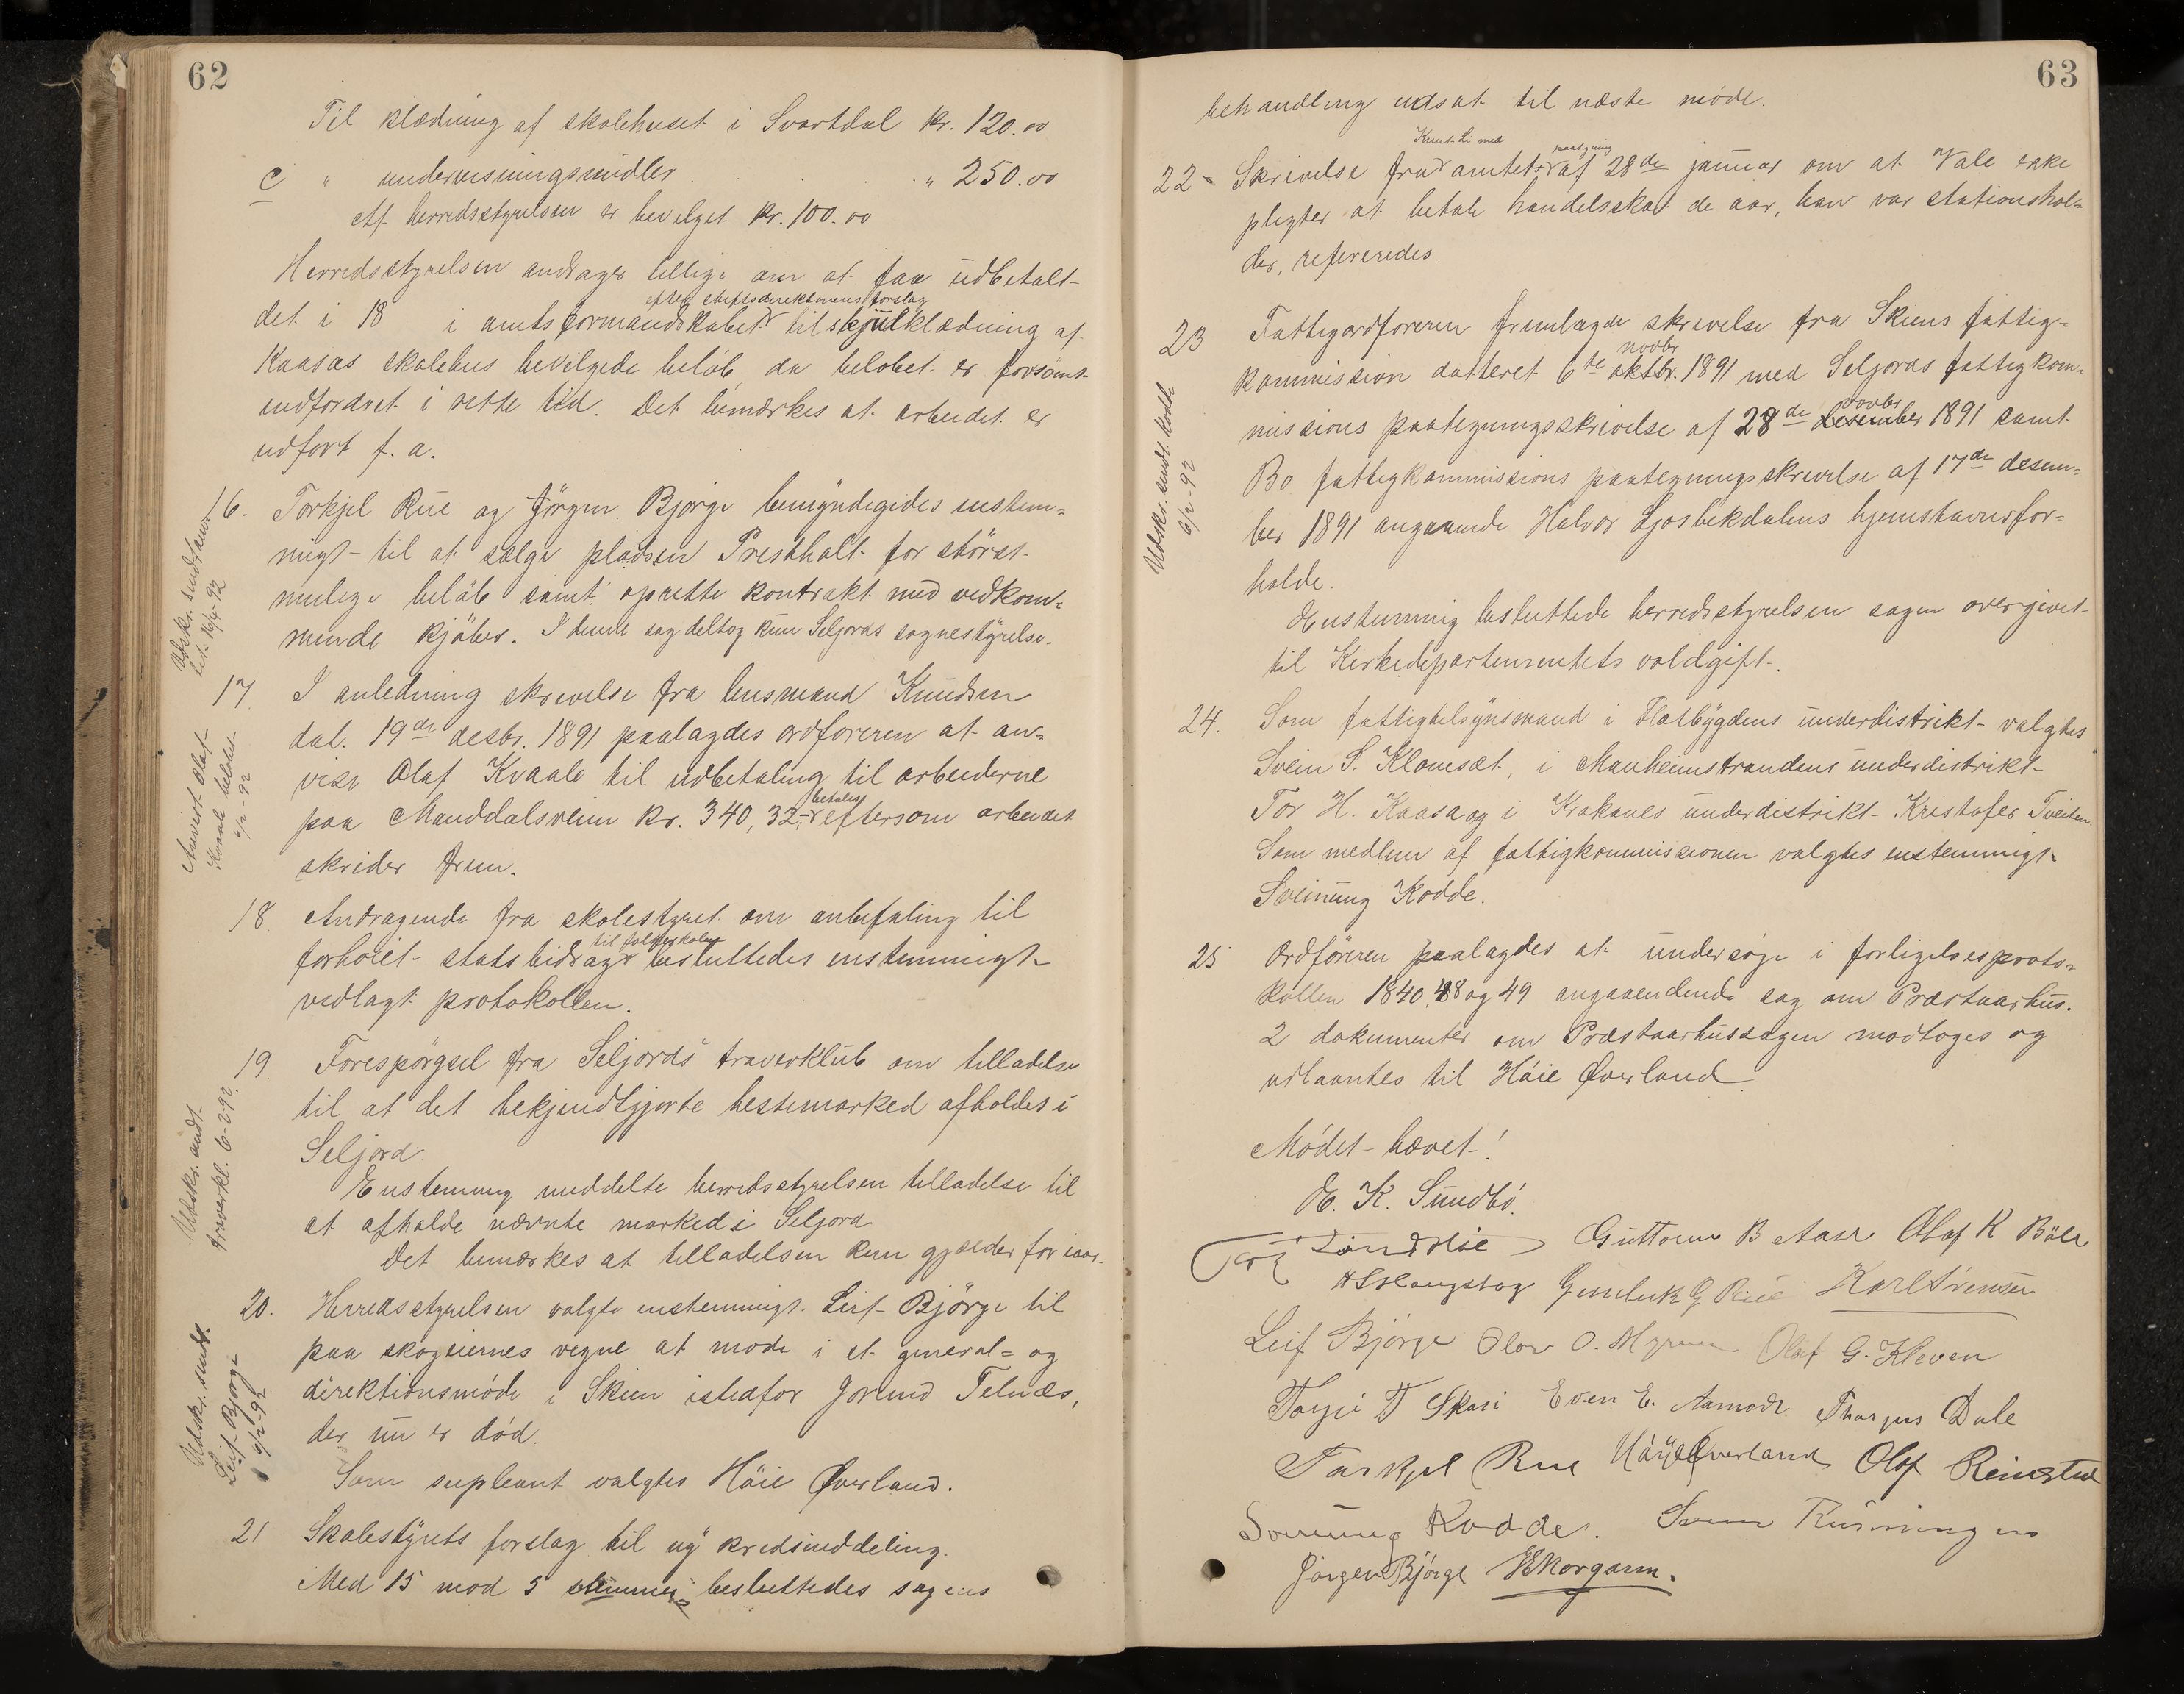 62
Til klædning af skolehuset i Svartdal kr. 120.00
c " undervisningsmidler " 250.00
Af herredsstyrelsen er bevilget kr. 100.00
Herredsstyrelsen andrager tillige om at faa udbetalt
efter skolesdirektørens forslag
det i 18 i amtsformandskabet til skjulklædning af
Kaasas skolehus bevilgede beløb da beløbet er forsømt
indfordret i rette tid. Det bemærkes at arbeidet er
udført f. a.
16. Torkjel Rue og Jörgen Bjørge bemyndigedes enstem=
migt til at sælge pladsen Presthalt for störst
mulige beløb samt oprette kontrakt med vedkom=
mende kjøber. I denne sag deltog kun Seljords sognestyrelse.
Udskr. sendt
bet. 16/4-92
17. I anledning skrivelse fra lensmand Knudsen
dat. 19de desbr. 1891 paalagdes ordføreren at an=
vise Olaf Kvaale til udbetaling til arbeiderne
betales
paa Manddalsveien kr. 340,32 eftersom arbeidet
skrider frem.
Anvist Olaf
Kvaale beløbet
6/2-92
18. Andragende fra skolestyret om anbefaling til
til folkeskolen
forhøiet statsbidrag besluttedes enstemmigt
vedlagt protokollen.
19 Forespørgsel fra Seljords traverklub om tilladelse
til at det bekjendtgjorte hestemarked afholdes i
Seljord.
Enstemmig meddelte herredsstyrelsen tilladelse til
at afholde nævnte marked i Seljord
Det bemærkes at tilladelsen kun gjælder for iaar.
Udskr. sendt
traverkl. 6-2-92.
20. Herredsstyrelsen valgte enstemmigt Leif Bjørge til
paa skogeiernes vegne at møde i et general= og
direktionsmøde i Skien istedfor Jorund Telnæs,
der nu er død.
Som supleant valgtes Höie Øverland.
Udskr. sendt
Leif Bjørge
6/2-92
21 Skolestyrets forslag til ny kredsinddeling.
Med 15 mod 5 stemmer besluttedes sagens
63
behandling udsat til næste møde.
Knut Li med paategning
22 Skrivelse fra amtet af 28de januar om at Vale ikke
pligter at betale handelsskat de aar, han var stationshol=
der, refereredes.
23 Fattigordføreren fremlagde skrivelse fra Skiens fattig=
novbr
kommission datteret 6te oktbr. 1891 med Seljords fattigkom=
novbr
missions paategningsskrivelse af 28de desember 1891 samt
Bø fattigkommissions paategningsskrivelse af 17de desem=
ber 1891 angaaende Halvor Ljosbekdalens hjemstavnsfor=
holde.
Enstemmig besluttede herredsstyrelsen sagen overgivet
til Kirkedepartementets voldgift.
Udskr. sendt Kodde
6/2-92
24. Som fattigtilsynsmand i Flatbygdens underdistrikt valgtes
Svein S. Klomsæt, i Manheimstrandens underdistrikt
Tor H. Kaasa og i Krakanes underdistrikt Kristofer Tveiten.
Som medlem af fattigkommissionen valgtes enstemmigt
Sveinung Kodde.
25 Ordføreren paalagdes at undersøge i forligelsesproto=
kollen 1840, 48 og 49 angaaendende sag om Præstaarhus.
2 dokumenter om Præstaarhussagen modtoges og
udlaantes til Höie Øverland
Mødet hævet!
E. K. Sundbø.
Guttorm B Aase Olaf K Böle
H S Haugstog Gunleik G Rue Karl Svensen
Leif Bjørge Olav O. Myrum Olaf G. Kleven
Targei T Skori Even E. Aamodt Thorgus Dale
Tarkjel Rue Höye Øverland Olaf Reinsted
Sveinung Kodde. Svein Rusningen
Jørgen Bjørge Morgarm.